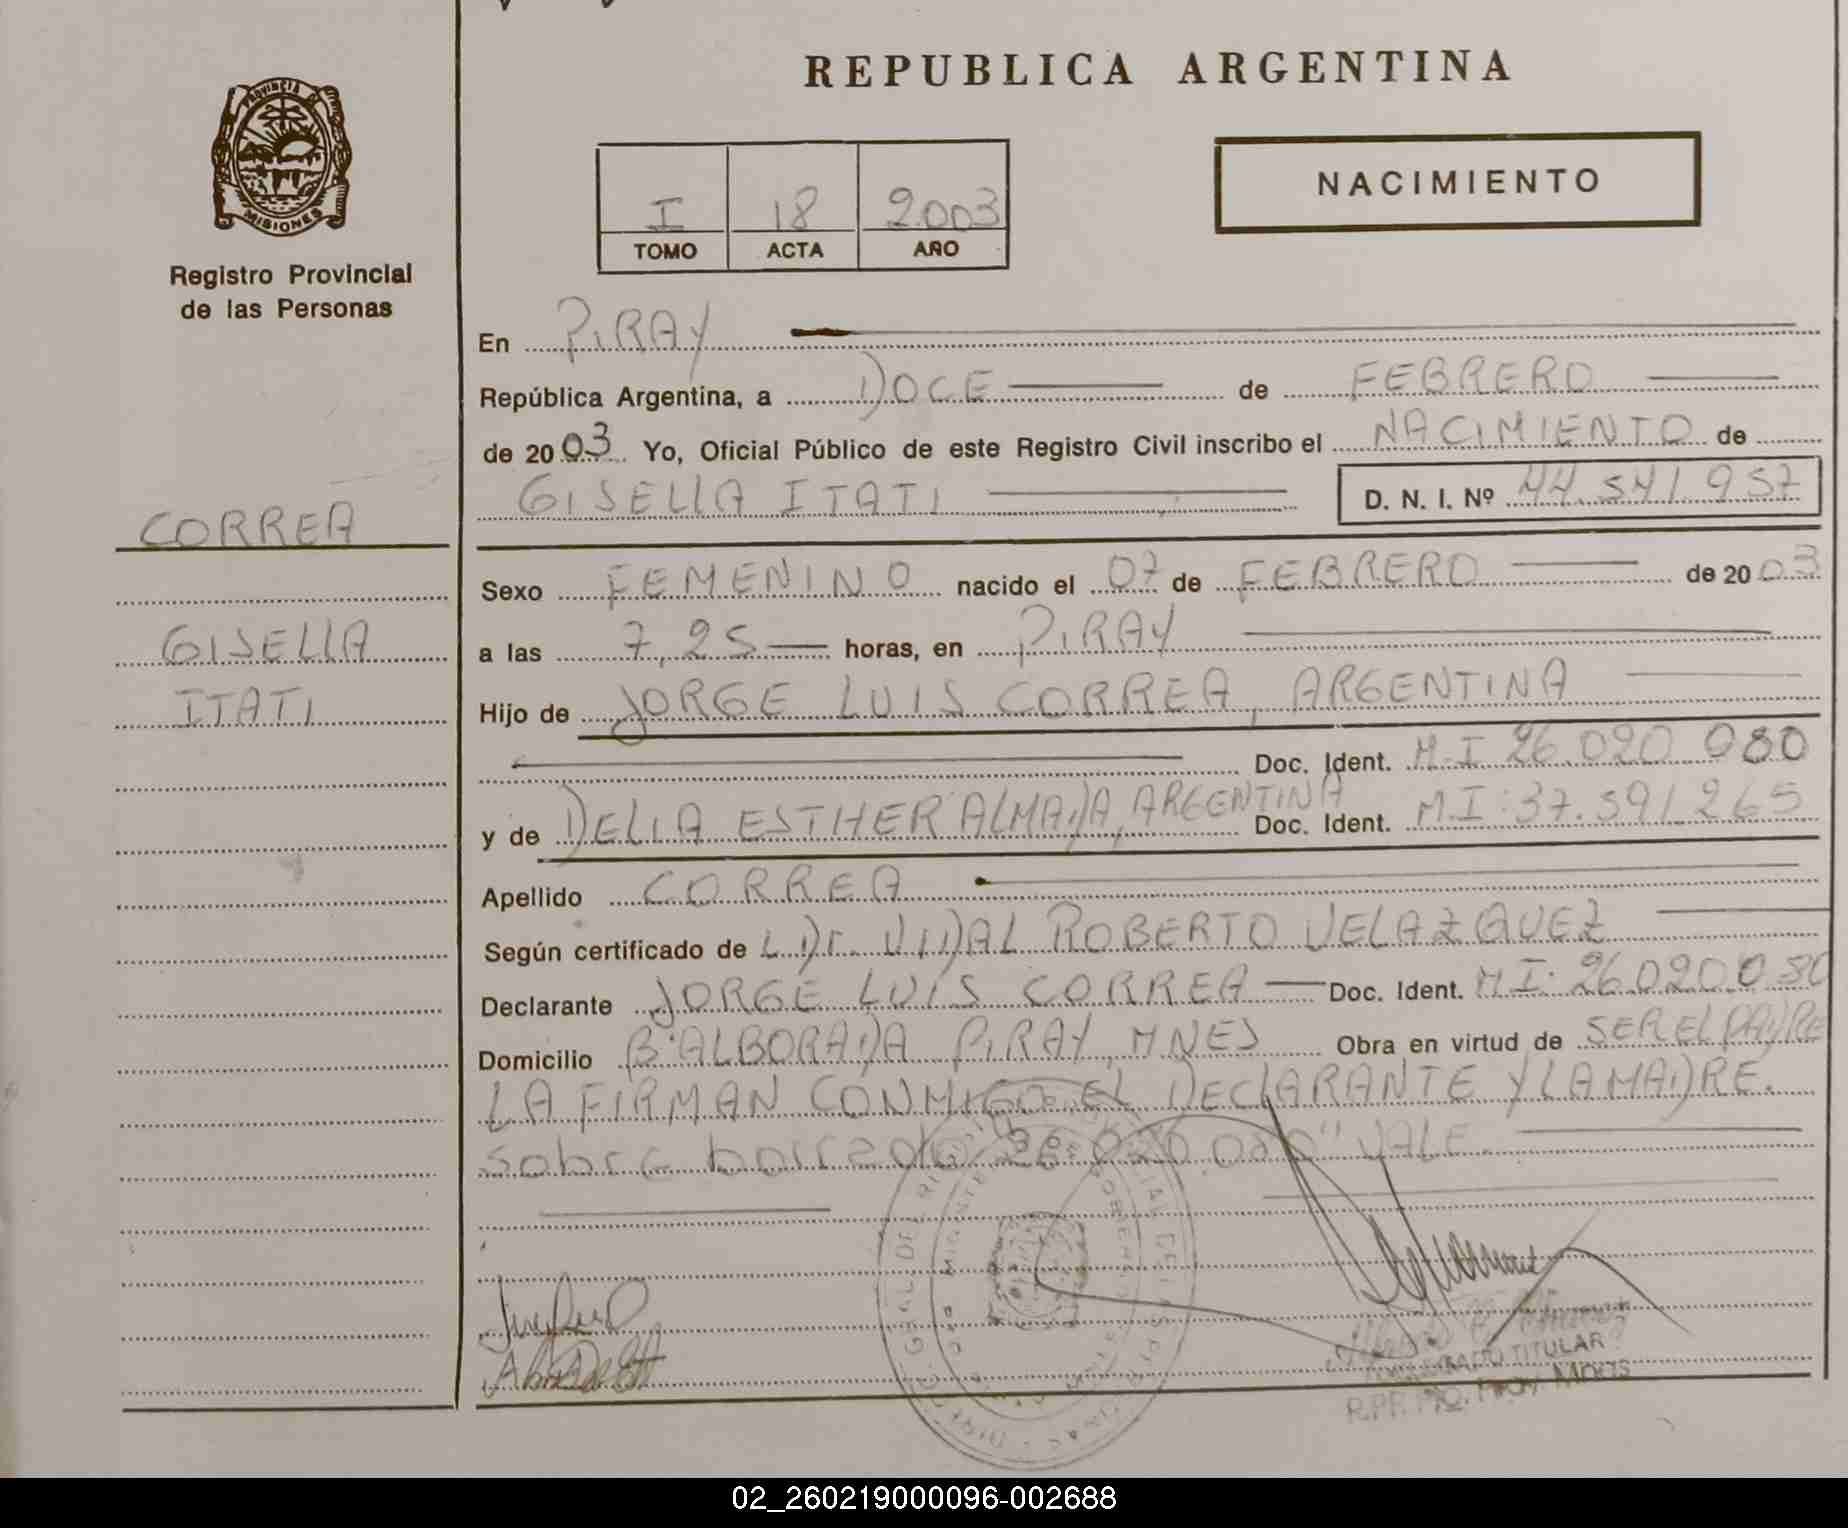 REPUBLICA ARGENTINA
PROVINCIA DE
MISIONES
Registro Provincial
de las Personas
I 18 2.003
TOMO ACTA AÑO
NACIMIENTO
En PIRAY
República Argentina, a DOCE de FEBRERO
de 2003 Yo, Oficial Público de este Registro Civil inscribo el NACIMIENTO de
GISELLA ITATI D. N. I. Nº 44.541.957
CORREA
Sexo FEMENINO nacido el 07 de FEBRERO de 2003
GISELLA
a las 7,25 horas, en PIRAY
ITATI
Hijo de JORGE LUIS CORREA, ARGENTINA
Doc. Ident. M.I 26.020.080
y de DELIA ESTHER ALMADA, ARGENTINA Doc. Ident. M.I: 37.591.265
Apellido CORREA
Según certificado de L Dr. VIDAL ROBERTO VELAZQUEZ
Declarante JORGE LUIS CORREA Doc. Ident. M I: 26.020.080
Domicilio Bº ALBORADA PIRAY, MNES Obra en virtud de SER EL PADRE
LA FIRMAN CONMIGO EL DECLARANTE Y LA MADRE.
sobre borrado "26.020.080" VALE
TITULAR
02_260219000096-002688